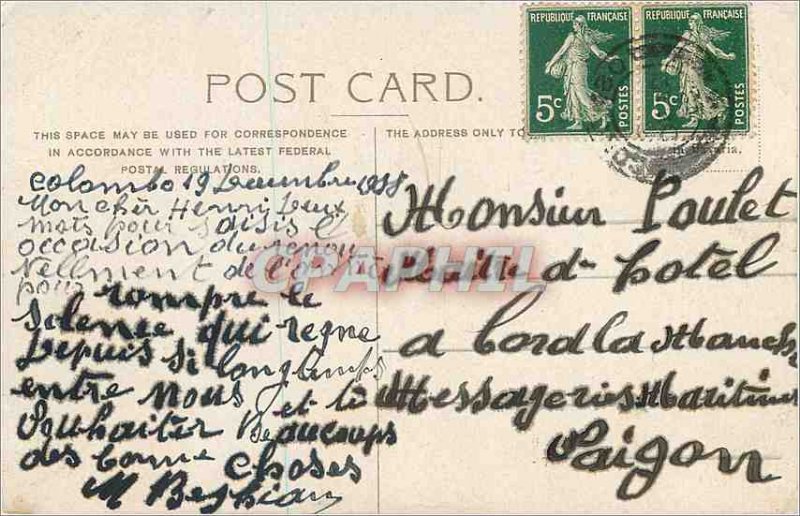 REPUBLIQUE FRANÇAISE
5c POSTES
REPUBLIQUE FRANÇAISE
5c POSTES
POST CARD.
THIS SPACE MAY BE USED FOR CORRESPONDENCE
IN ACCORDANCE WITH THE LATEST FEDERAL
POSTAL REGULATIONS.
THE ADDRESS ONLY TO
Colombo 19
Mon cher Henri Deux
mots pour saisir l
occasion du renou
vellment de l'
pour
rompre le
silence qui regne
Depuis si longtemps
entre nous et te
Souhaiter Beaucoups
des bonne choses
M
CPARPHIL
Monsieur Poulet
d hotel
a bord la Manche
Messageries Maritimes
Saigon